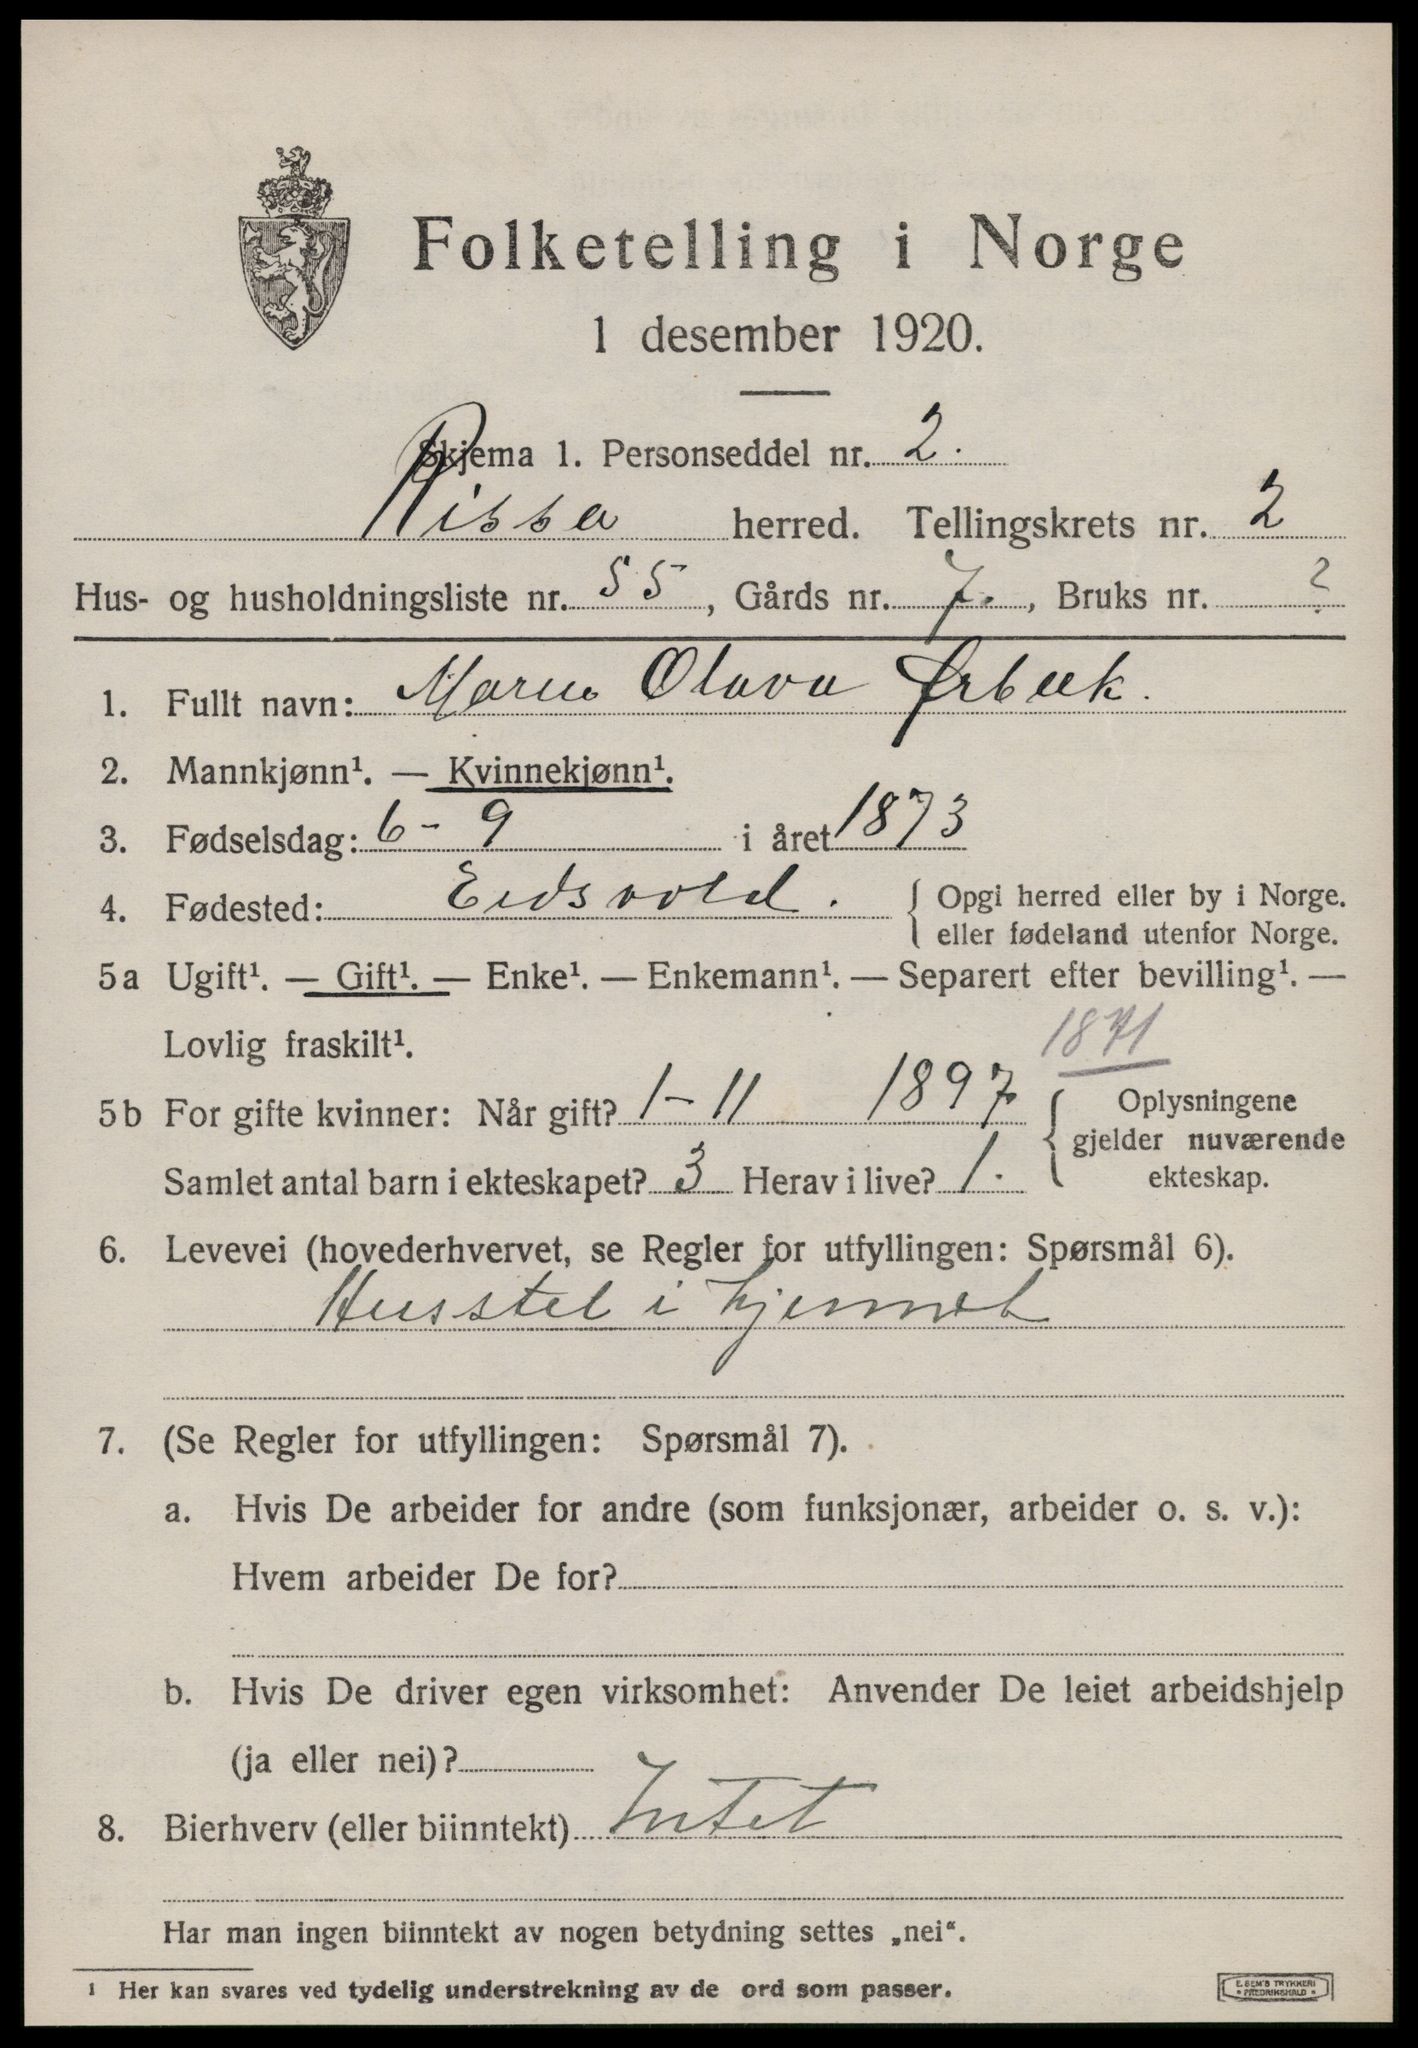 Folketelling i Norge
1 desember 1920.
Skjema 1. Personseddel nr. 2.
Rissa herred. Tellingskrets nr. 2
Hus- og husholdningsliste nr. 55, Gårds nr. 7., Bruks nr. ?
1. Fullt navn: Maren Olava Ørbæk.
2. Mannkjønn¹. — Kvinnekjønn¹.
3. Fødselsdag: 6-9 i året 1873
4. Fødested: Eidsvold. { Opgi herred eller by i Norge.
eller fødeland utenfor Norge.
5a Ugift¹. — Gift¹. — Enke¹. — Enkemann¹. — Separert efter bevilling¹. —
Lovlig fraskilt¹.
1871
5b For gifte kvinner: Når gift? 1-11 1897 { Oplysningene
gjelder nuværende
Samlet antal barn i ekteskapet? 3 Herav i live? 1.
ekteskap.
6. Levevei (hovederhvervet, se Regler for utfyllingen: Spørsmål 6).
Husstel i hjemmet
7. (Se Regler for utfyllingen: Spørsmål 7).
a. Hvis De arbeider for andre (som funksjonær, arbeider o. s. v.):
Hvem arbeider De for?
b. Hvis De driver egen virksomhet: Anvender De leiet arbeidshjelp
(ja eller nei)?
8. Bierhverv (eller biinntekt) Intet
Har man ingen biinntekt av nogen betydning settes „nei“.
¹ Her kan svares ved tydelig understrekning av de ord som passer.
E. SEM'S TRYKKERI
• FREDRIKSHALD •